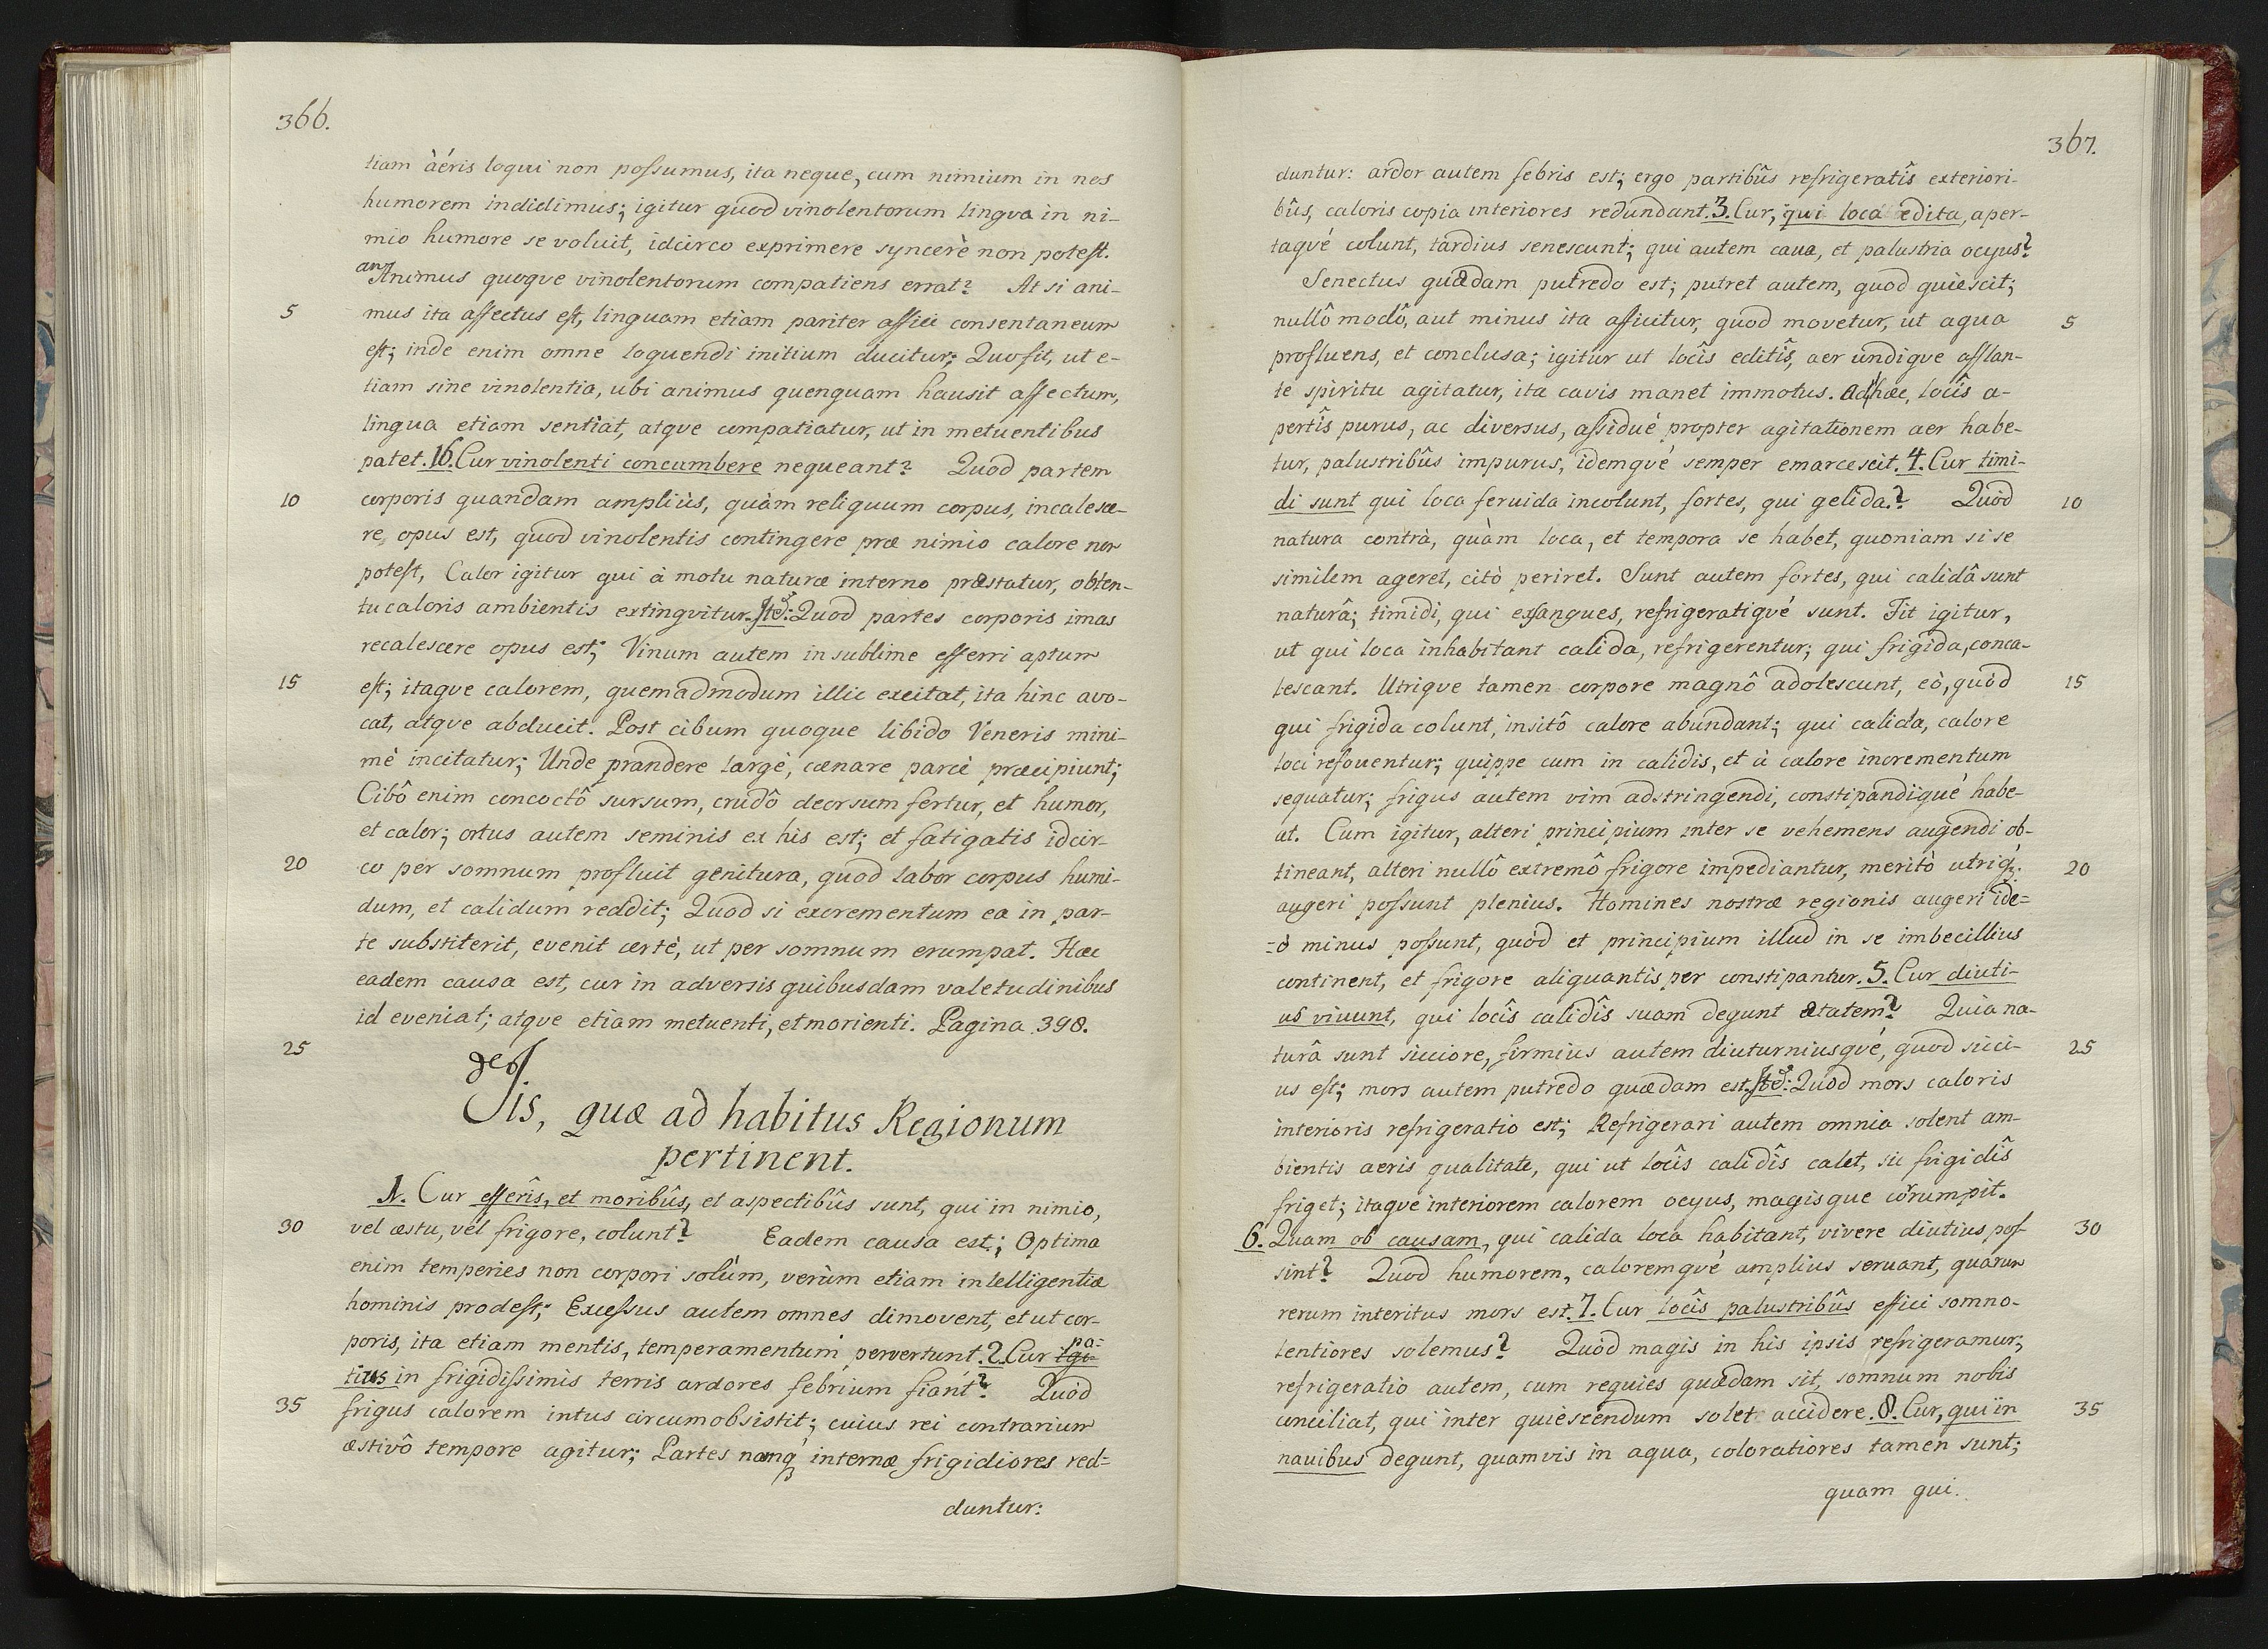 366.
tiam àéris loqui non possumus, ita neque, cum nimium in nos
humorem indidimus; igitur quod vinolentorum lingva in ni-
mio humore se voluit, idcirco exprimere syncerè non potest.
an Animus quoqve vinolentorum compatiens errat? At si ani-
5 mus ita affectus est, linguam etiam pariter affici consentaneum
est; inde enim omne loquendi initium ducitur; Quo fit, ut e-
tiam sine vinolentia, ubi animus quenquam hausit affectum,
lingua etiam sentiat, atqve compatiatur, ut in metuentibus
patet. 16. Cur vinolenti concumbere nequeant? Quod partem
10 corporis quandam ampliùs, quàm reliquum corpus, incalesce-
re, opus est, quod vinolentis contingere præ nimio calore non
potest, Calor igitur qui à motu naturæ interno præstatur, obten-
tu caloris ambientis extingvitur. Ite: Quod partes corporis imas
recalescere opus est; Vinum autem in sublime efferri aptum
15 est; itaqve calorem, quemadmodum illic excitat, ita hinc avo-
cat, atqve abducit. Post cibum quoque libido Veneris mini-
mè incitatur; Unde prandere largè, cænare parcè præcipiunt;
Cibô enim concoctô sursum, crudô deorsum fertur, et humor,
et calor; ortus autem seminis ex his est; et fatigatis idcir-
20 co per somnum profluit genitura, quod labor corpus humi-
dum, et calidum reddit; Quod si excrementum ea in par-
te substiterit, evenit certè, ut per somnum erumpat. Hæc
eadem causa est, cur in adversis quibusdam valetudinibus
id eveniat; atqve etiam metuenti, et morienti. Pagina 398.
25
de
Iis, quæ ad habitus Regionum
pertinent.
1. Cur efferîs, et moribûs, et aspectibûs sunt, qui in nimio,
30 vel æstu, vel frigore, colunt? Eadem causa est; Optima
enim temperies non corpori solùm, verùm etiam intelligentiæ
hominis prodest; Excessus autem omnes dimovent, et ut cor-
poris, ita etiam mentis, temperamentum pervertunt. 2. Cur pa-
tius in frigidissimis terris ardores febrium fiant? Quòd
35 frigus calorem intus circumobsistit; cuius rei contrarium
æstivô tempore agitur; Partes namq internæ frigidiores red-
duntur:
367.
duntur: ardor autem febris est; ergo partibûs refrigeratîs exteriori-
bûs, caloris copia interiores redundant. 3. Cur, qui loca edita, aper-
taqvé colunt, tardius senescunt; qui autem cava, et palustria ocyus?
Senectus quædam putredo est; putret autem, quod quiescit;
nullô modô, aut minus ita afficitur, quod movetur, ut aqua 5
profluens, et conclusa; igitur ut locîs editîs, aer undiqve afflan-
te spiritu agitatur, ita cavis manet immotus. Ad hæc, locîs a-
pertîs purus, ac diversus, assiduè propter agitationem aer habe-
tur, palustribûs impurus, idemqvé semper emarcescit. 4. Cur timi-
di sunt qui loca feruida incolunt, fortes, qui gelida? Quòd 10
natura contrà, quàm loca, et tempora se habet, quoniam si se
similem ageret, citò periret. Sunt autem fortes, qui calidâ sunt
naturâ; timidi, qui exangues, refrigeratiqvé sunt. Fit igitur,
ut qui loca inhabitant calida, refrigerentur; qui frigida, conca-
lescant. Utriqve tamen corpore magnô adolescunt, eò, quòd 15
qui frigida colunt, insitô calore abundant; qui calida, calore
loci refouentur; quippe cum in calidis, et à calore incrementum
sequatur; frigus autem vim adstringendi, constipandiqué habe-
at. Cum igitur, alteri principium inter se vehemens augendi ob-
tineant, alteri nullô extremô frigore impediantur, meritò utriq; 20
augeri possunt plenius. Homines nostræ regionis augeri ide=
=ò minus possunt, quòd et principium illud in se imbecillius
continent, et frigore aliquantisper constipantur. 5. Cur diuti-
us viuunt, qui locîs calidîs suam degunt ætatem? Quia na-
turâ sunt sicciore, firmius autem diuturniusqvé, quod sicci- 25
us est; mors autem putredo quædam est. Ite: Quod mors caloris
interioris refrigeratio est; Refrigerari autem omnia solent am-
bientis aeris qualitate, qui ut locîs calidîs calet, sic frigidîs
friget; itaqvé interiorem calorem ocyus, magisque corumpit.
6. Quam ob causam, qui calida loca habitant, vivere diutius pos- 30
sint? Quod humorem, caloremqvé amplius seruant, quarum
rerum interitus mors est. 7. Cur locîs palustribûs effici somno-
lentiores solemus? Quòd magis in his ipsis refrigeramur;
refrigeratio autem, cum requies quædam sit, somnum nobis
conciliat, qui inter quiescendum solet accidere. 8. Cur, qui in 35
nauibus degunt, quamvis in aqua, coloratiores tamen sunt;
quam qui.